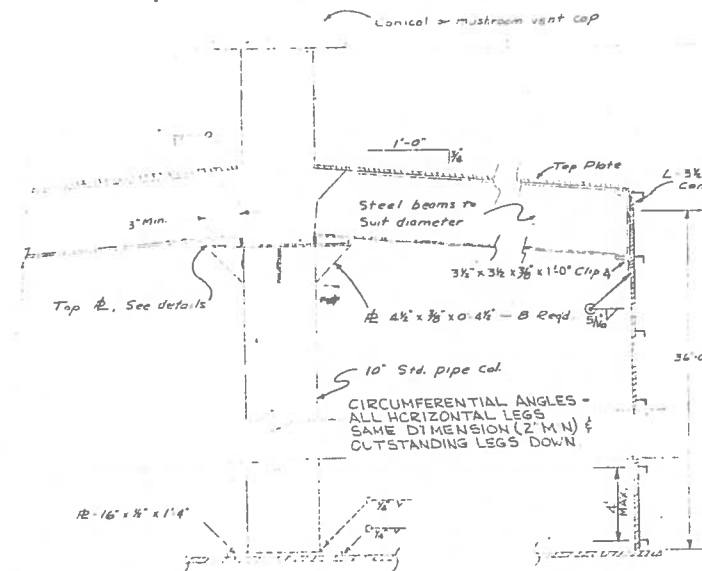 Conical or mushroom vent cap
1'-0"
3/4
Top Plate
L-3½
Steel beams to
Suit diameter
3" Min.
3½" x 3½ x ⅜ x 1'-0" Clip
Top ℄, See details
℄ 4½" x ⅜" x 0-4½" - 8 Req'd
5/16
36'-
10" Std. pipe Col.
CIRCUMFERENTIAL ANGLES -
ALL HORIZONTAL LEGS
SAME DIMENSION (2" MIN) &
OUTSTANDING LEGS DOWN
℄-16" x ½" x 1'-4"
¼ V
¼ V
4' MAX.